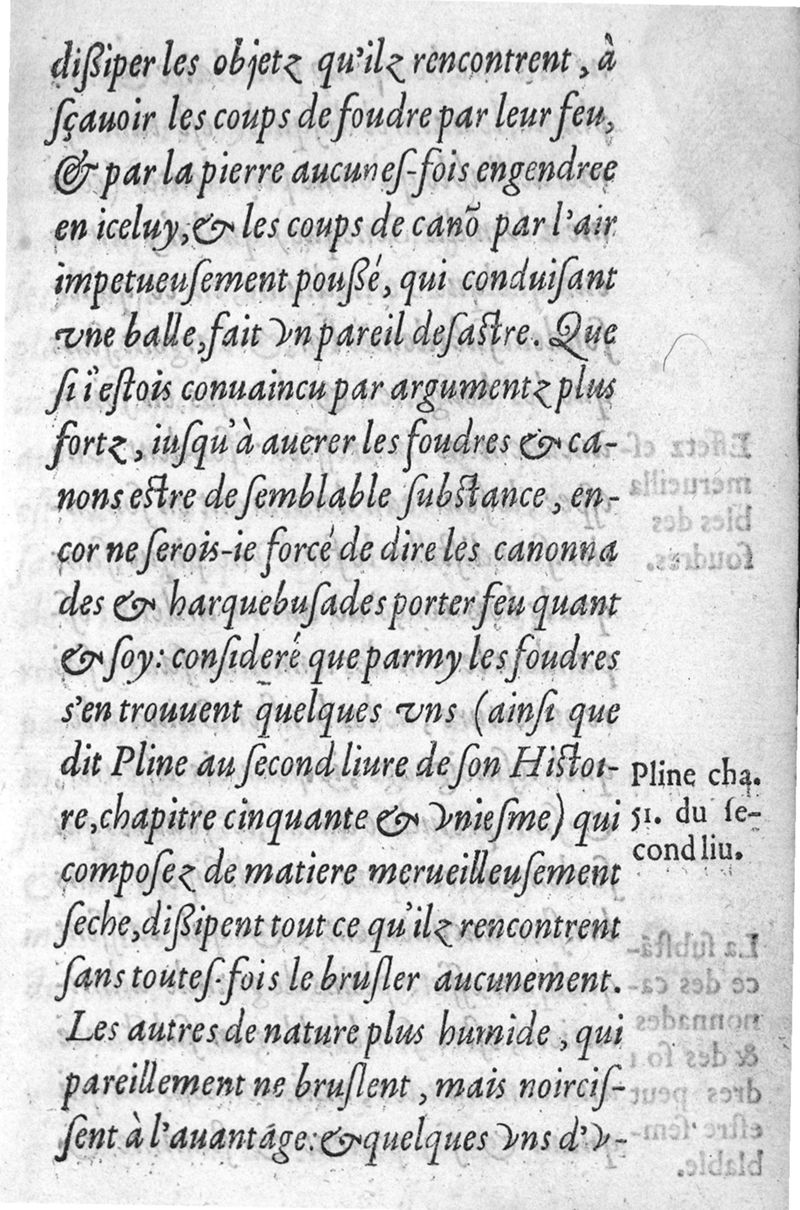 dißiper les objetz qu'ilz rencontrent, à
ſçauoir les coups de foudre par leur feu,
& par la pierre aucuneſ-fois engendree
en iceluy, & les coups de canō par l'air
impetueuſement poußé, qui conduiſant
vne balle, fait vn pareil deſaſtre. Que
ſi i'eſtois conuaincu par argumentz plus
fortz, iuſqu'à auerer les foudres & ca-
nons eſtre de ſemblable ſubſtance, en-
cor ne ſerois-ie forcé de dire les canonna
des & harquebuſades porter feu quant
& ſoy: conſideré que parmy les foudres
s'en trouuent quelques vns (ainſi que
dit Pline au ſecond liure de ſon Hiſtoi-
re, chapitre cinquante & vnieſme) qui
compoſez de matiere merueilleuſement
ſeche, dißipent tout ce qu'ilz rencontrent
ſans touteſ-fois le bruſler aucunement.
Les autres de nature plus humide, qui
pareillement ne bruſlent, mais noirciſ-
ſent à l'auantáge: & quelques vns d'v-
Pline cha.
51. du ſe-
cond liu.